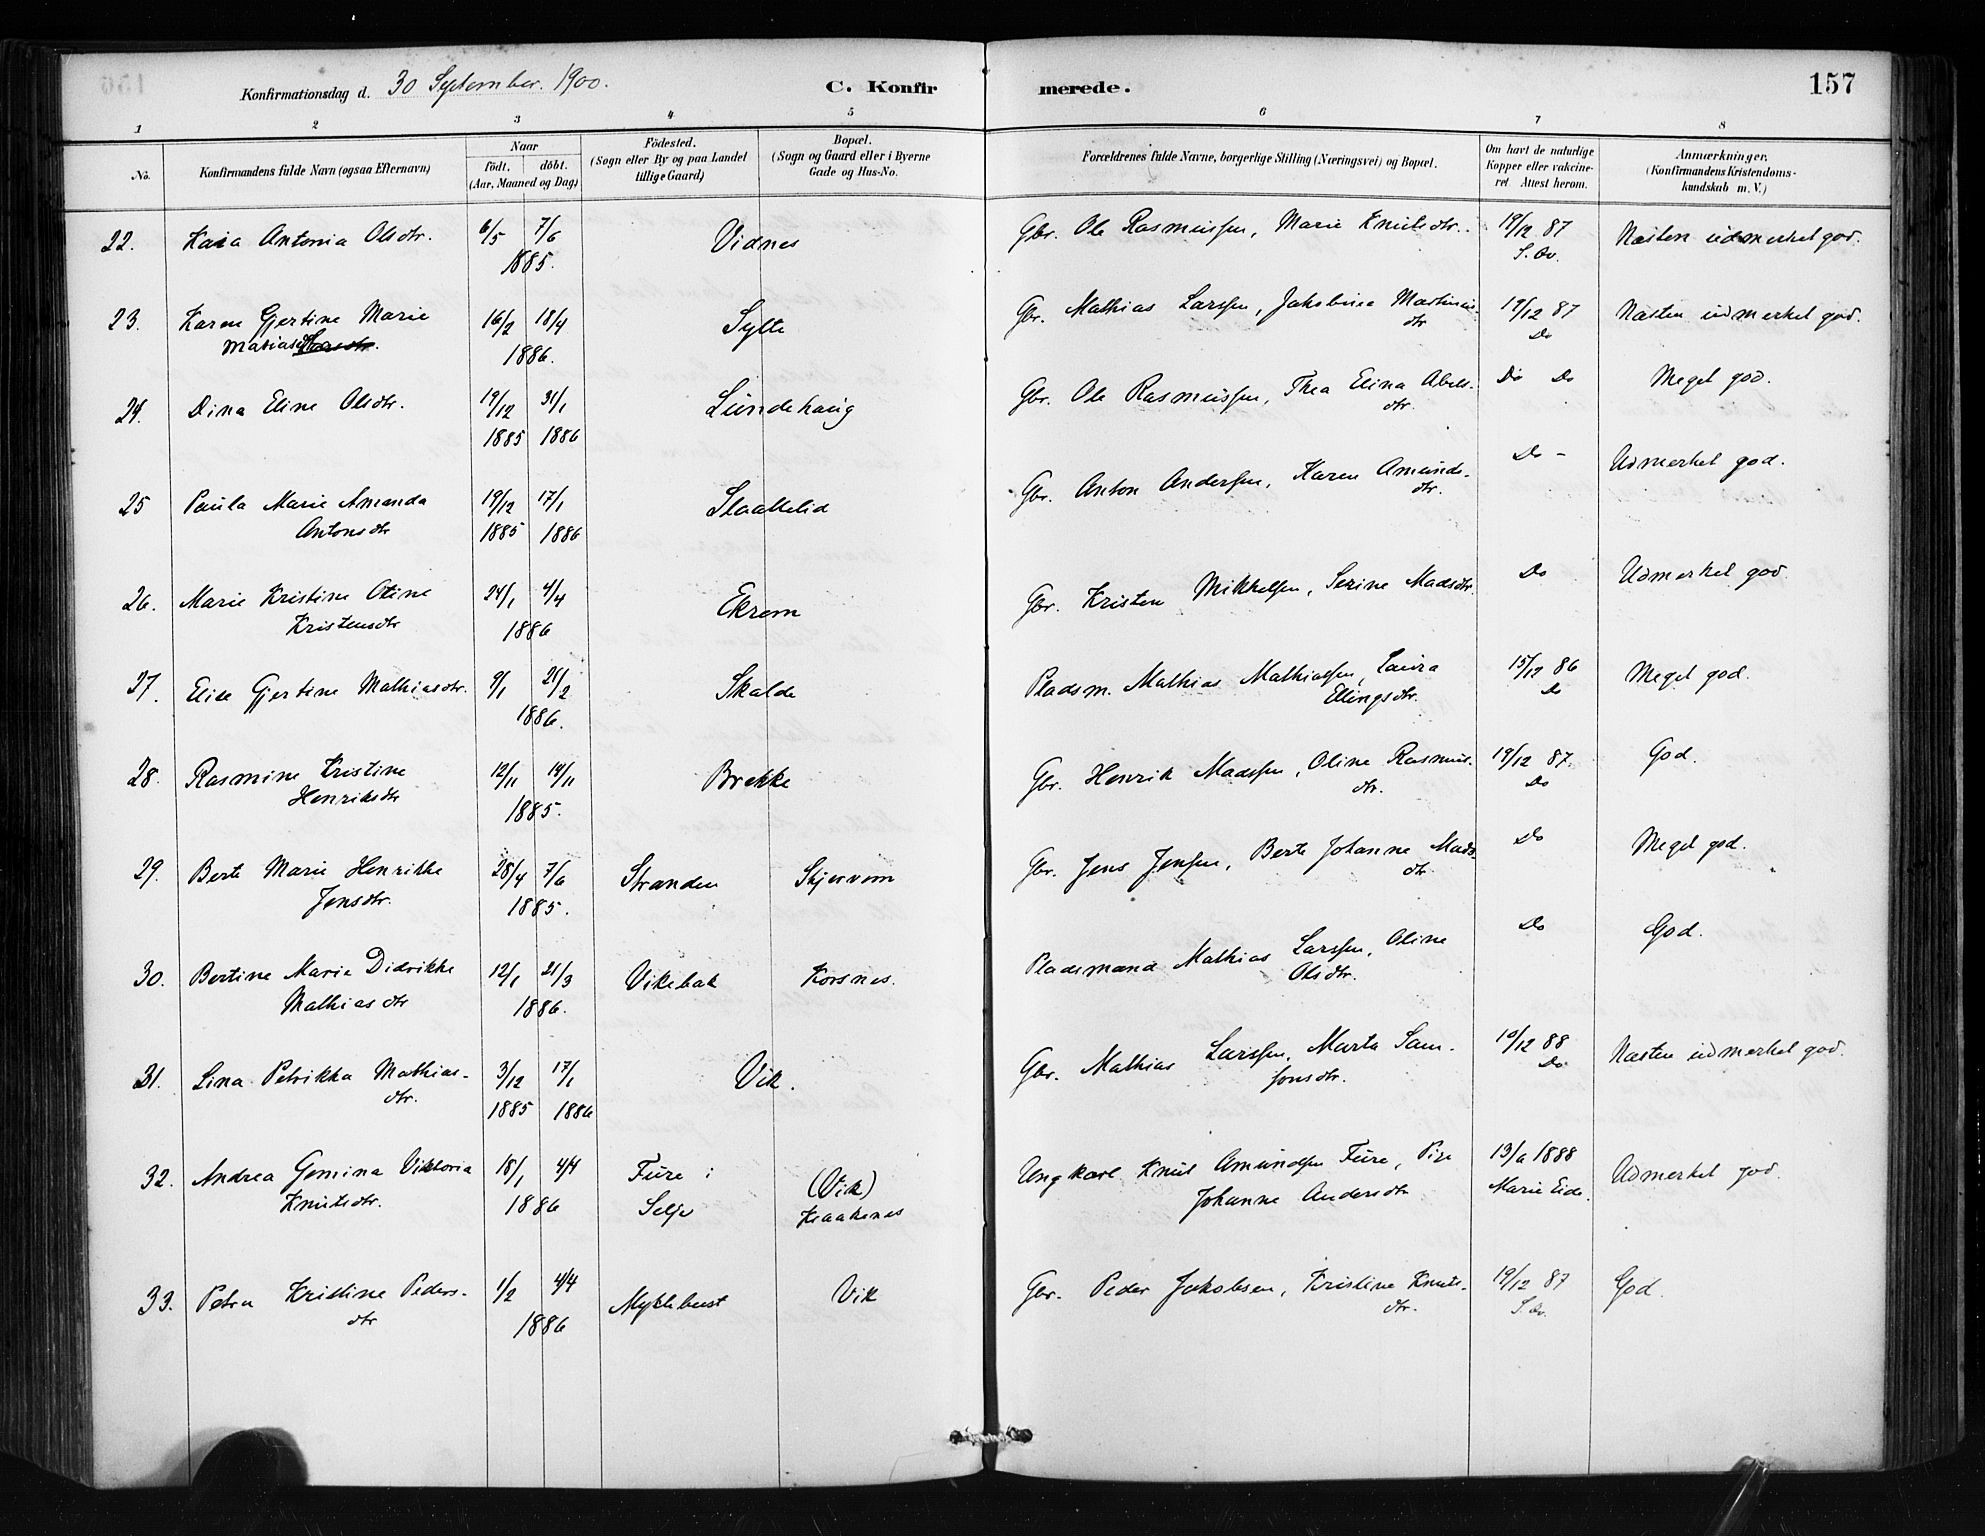 Konfirmationsdag d. 30 September. 1900.
C. Konfir
merede.
157
1 2 3 4 5 6 7 8
No.
Konfirmandens fulde Navn (ogsaa Efternavn)
Naar
födt. döbt.
(Aar, Maaned og Dag)
Födested.
(Sogn eller By og paa Landet
tillige Gaard)
Bopæl.
(Sogn og Gaard eller i Byerne
Gade og Hus-No.
Forældrenes fulde Navne, borgerlige Stilling (Næringsvei) og Bopæl.
Om havt de naturlige
Kopper eller vakcine-
ret Attest herom.
Anmærkninger.
(Konfirmandens Kristendoms-
kundskab m. V.)
22. Kaia Antonia Olsdtr. 6/5 7/6 Vidnes Gbr. Ole Rasmussen, Marie Knutsdtr. 19/12 87 Næsten udmerket god.
1885. S. Øv.
23. Karen Gjertine Marie 16/2 18/4 Sylte Gbr. Mathias Larssen, Jakobine Martinus- 19/12 87 Næsten udmerket god.
Matiasdtr. 1886. dtr Do
24. Dina Eline Olsdtr. 19/12 31/1 Lundehaug Gbr. Ole Rasmussen, Thea Elina Abels- Do Do Meget god.
1885 1886 dtr.
25 Paula Marie Amanda 19/12 17/1 Staallelid Gbr. Anton Andersen, Karen Amunds- Do - Udmerket god.
Antonsdtr 1885 1886 dtr.
26. Marie Kristine Otine 24/1 4/4 Ekrem Gbr. Kristen Mikkelsen, Serine Madsdtr. Do Udmerket god.
Kristensdtr 1886
27. Elise Gjertine Mathiasdtr. 9/1 21/2 Skalde Pladsm. Mathias Mathiassen, Laura 15/12 86 Meget god.
1886. Ellingsdtr. Do
28. Rasmine Kristine 12/11 14/11 Brekke Gbr. Henrik Madssen, Oline Rasmus- 19/12 87. God.
Henriksdtr 1885. dtr. Do
29. Berte Marie Henrikke 28/4 7/6 Stranden Skjervem Gbr. Jens Jensen, Berte Johanne Mads- Do Meget god.
Jensdtr. 1885. dtr.
30. Bertine Marie Didrikke 12/1 21/3 Vikebak Korsnes. Pladsmand Mathias Larssen, Oline Do God.
Mathiasdtr 1886. Olsdtr.
31. Lina Petrikka Mathias- 3/12 17/1 Vik. Gbr. Mathias Larssen, Marta Sam- 19/12 88 Næsten udmerket god.
dtr. 1885 1886 sonsdtr. Do
32. Andrea Gemina Viktoria 18/1 4/4 Fure i (Vik) Ungkarl Knut Amundsen Fure, Pige 13/6 1888 Udmerket god.
Knutsdtr. 1886 Selje Kraakenes Johanne Andersdtr Marie Eide.
33. Petra Kristine Peders- 1/2 4/4 Myklebust Vik Gbr. Peder Jakobsen, Kristine Knuts- 19/12 87 God.
dtr 1886 dtr. S. Øv.